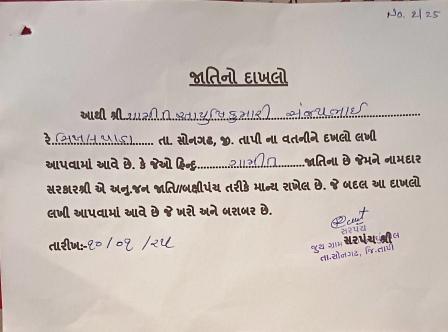 No. 2/25
જાતિનો દાખલો
આથી શ્રી ગામીત આયુષિકુમારી સંજયભાઈ
રે. તા. સોનગઢ, જી. તાપી ના વતનીને દાખલો લખી
આપવામાં આવે છે. કે જેઓ હિન્દુ ગામીત જાતિના છે જેમને નામદાર
સરકારશ્રી એ અનુ.જન જાતિ/બક્ષીપંચ તરીકે માન્ય રાખેલ છે. જે બદલ આ દાખલો
લખી આપવામાં આવે છે જે ખરો અને બરાબર છે.
તારીખ:- ૧૦/૦૧/૨૫
સરપંચ
જુથ ગામ સરપંચ શ્રી
તા.સોનગઢ, જિ.તાપી